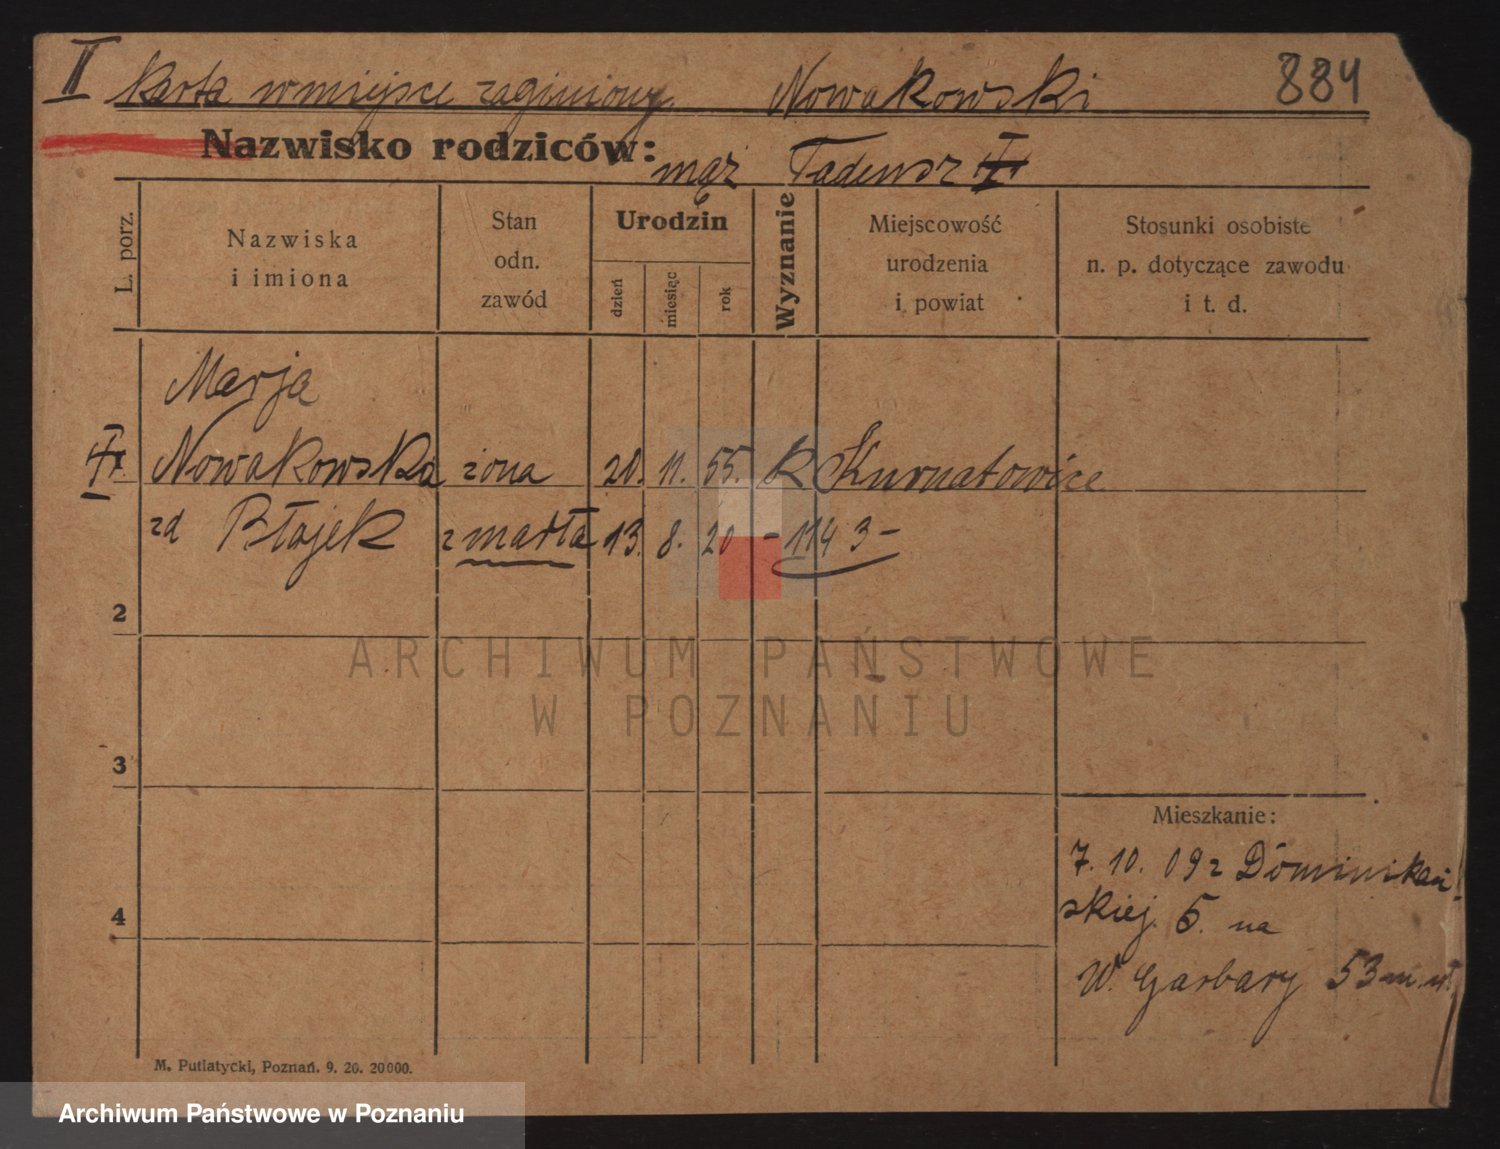 II Karta w miejsce zaginionej Nowakowski 884
Nazwisko rodziców: mąż Tadeusz
L. porz.
Nazwiska
i imiona
Stan
odn.
zawód
Urodzin
dzień
miesiąc
rok
Wyznanie
Miejscowość
urodzenia
i powiat
Stosunki osobiste
n. p. dotyczące zawodu
i t. d.
Marja
Nowakowska żona 20. 11. 55. K Kurnatowice
zd Błajek zmarła 13. 8. 20 - 1143 -
2
3
4
Mieszkanie:
7. 10. 09 z Dominikań
skiej 5 na
W. Garbary 53
M. Putiatycki, Poznań. 9. 20. 20000.
ARCHIWUM PAŃSTWOWE
W POZNANIU
Archiwum Państwowe w Poznaniu